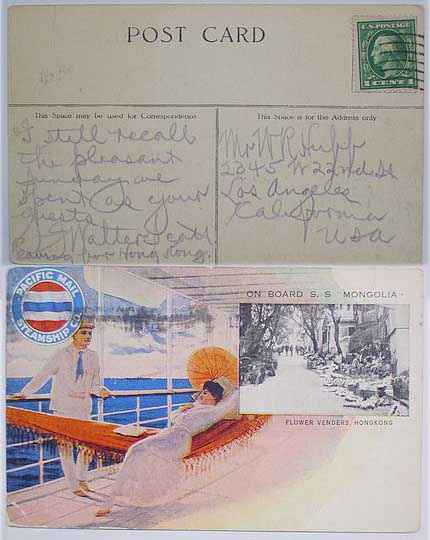 POST CARD
U.S. POSTAGE
1 CENT 1
This Space may be used for Correspondence
I still recall
the pleasant
Sunday we
spent as your
guests.
J Walter Scott
Leaving for Hong Kong.
This Space is for the Address only
Mr W R Hupp
2345 W 22nd St
Los Angeles
California
USA
PACIFIC MAIL
STEAMSHIP CO.
ON BOARD S. S "MONGOLIA"
FLOWER VENDERS, HONGKONG